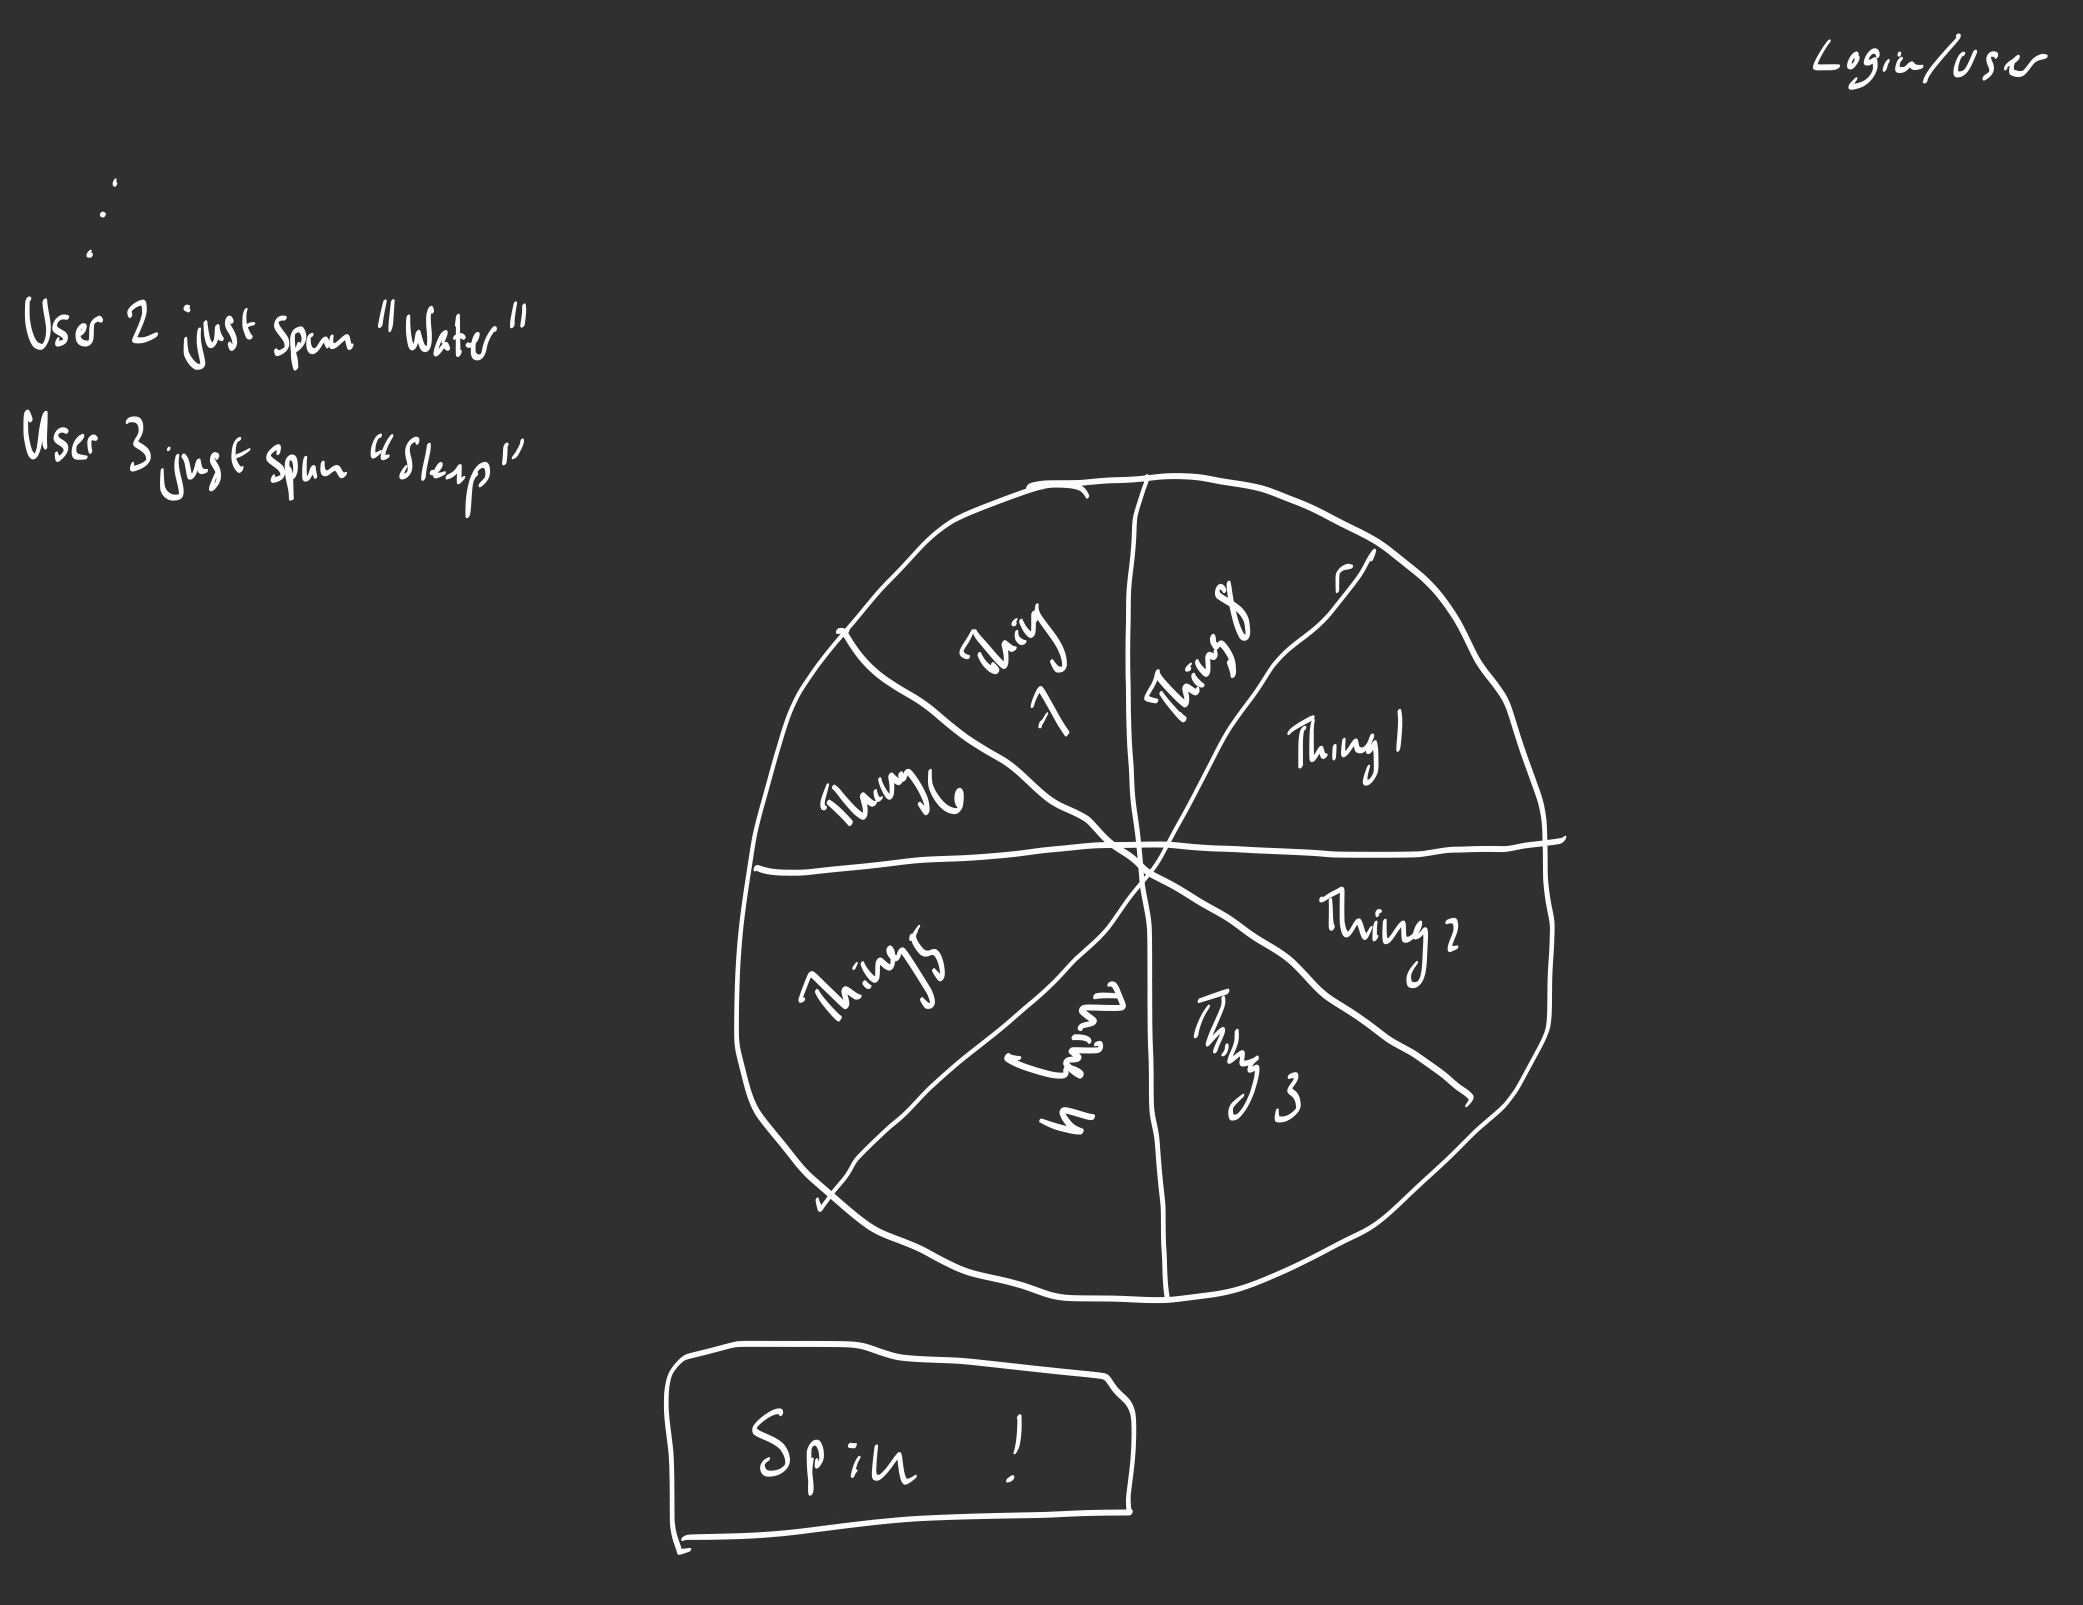 Login/User
User 2 just span "Water"
User 3 just span "Sleep"
Thing 1
Thing 2
Thing 3
Thing 4
Thing 5
Thing 6
Thing
7
Thing 8
Spin !